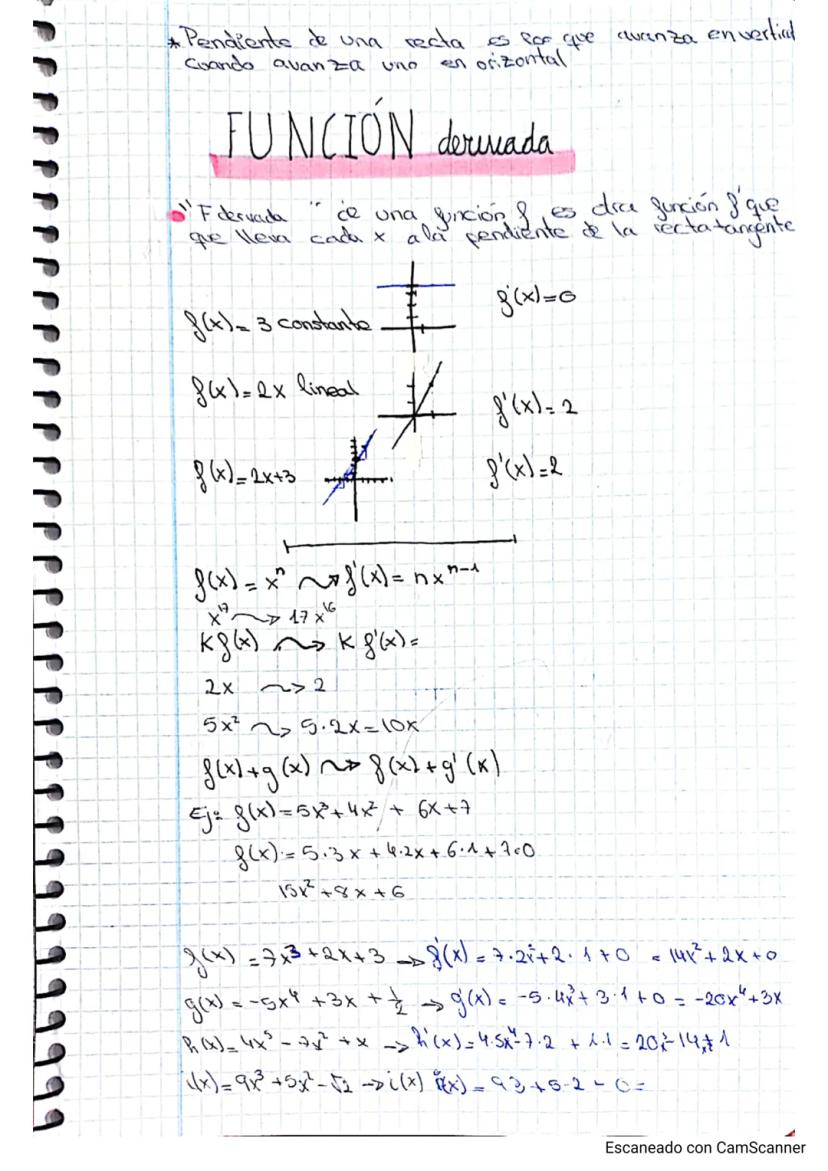 * Pendiente de una recta es lo que avanza en vertical
cuando avanza uno en orizontal
FUNCIÓN derivada
"F derivada" de una función f es otra función f' que
que lleva cada x a la pendiente de la recta tangente
f(x) = 3 constante f'(x)=0
f(x) = 2x lineal f'(x) = 2
f(x) = 2x+3 f'(x) = 2
f(x) = xⁿ ⇝ f'(x) = nxⁿ⁻¹
x¹⁷ ⇝ 17x¹⁶
Kf(x) ⇝ K f'(x) =
2x ⇝ 2
5x² ⇝ 5·2x = 10x
f(x)+g(x) ⇝ f(x)+g'(x)
Ej: f(x) = 5x³+4x² + 6x+7
f(x) = 5·3x + 4·2x + 6·1 + 7·0
15x² + 8x + 6
f(x) = 7x³+2x+3 → f'(x) = 7·2x²+2·1+0 = 14x²+2x+0
g(x) = -5x⁴ +3x + 1/2 → g'(x) = -5·4x³+3·1+0 = -20x⁴+3x
h(x) = 4x⁵ - 7x² + x → h'(x) = 4·5x⁴-7·2 + 1·1 =
i(x) = 9x³ +5x² - √2 → i(x)
Escaneado con CamScanner